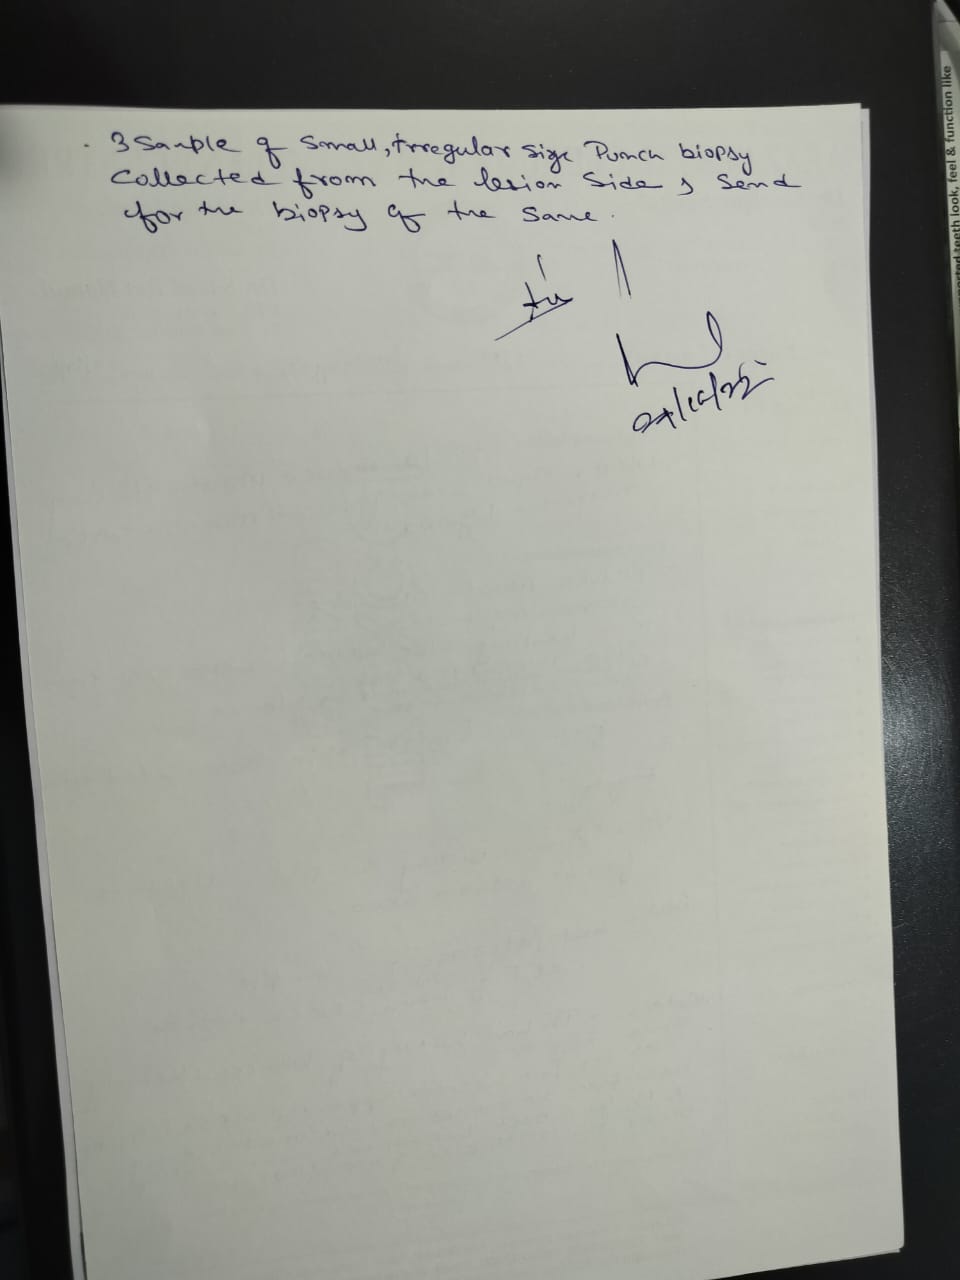 . 3 Sample of Small, irregular size Punch biopsy
Collected from the lesion Side & Send
for the biopsy of the same.
nected teeth look, feel & function like